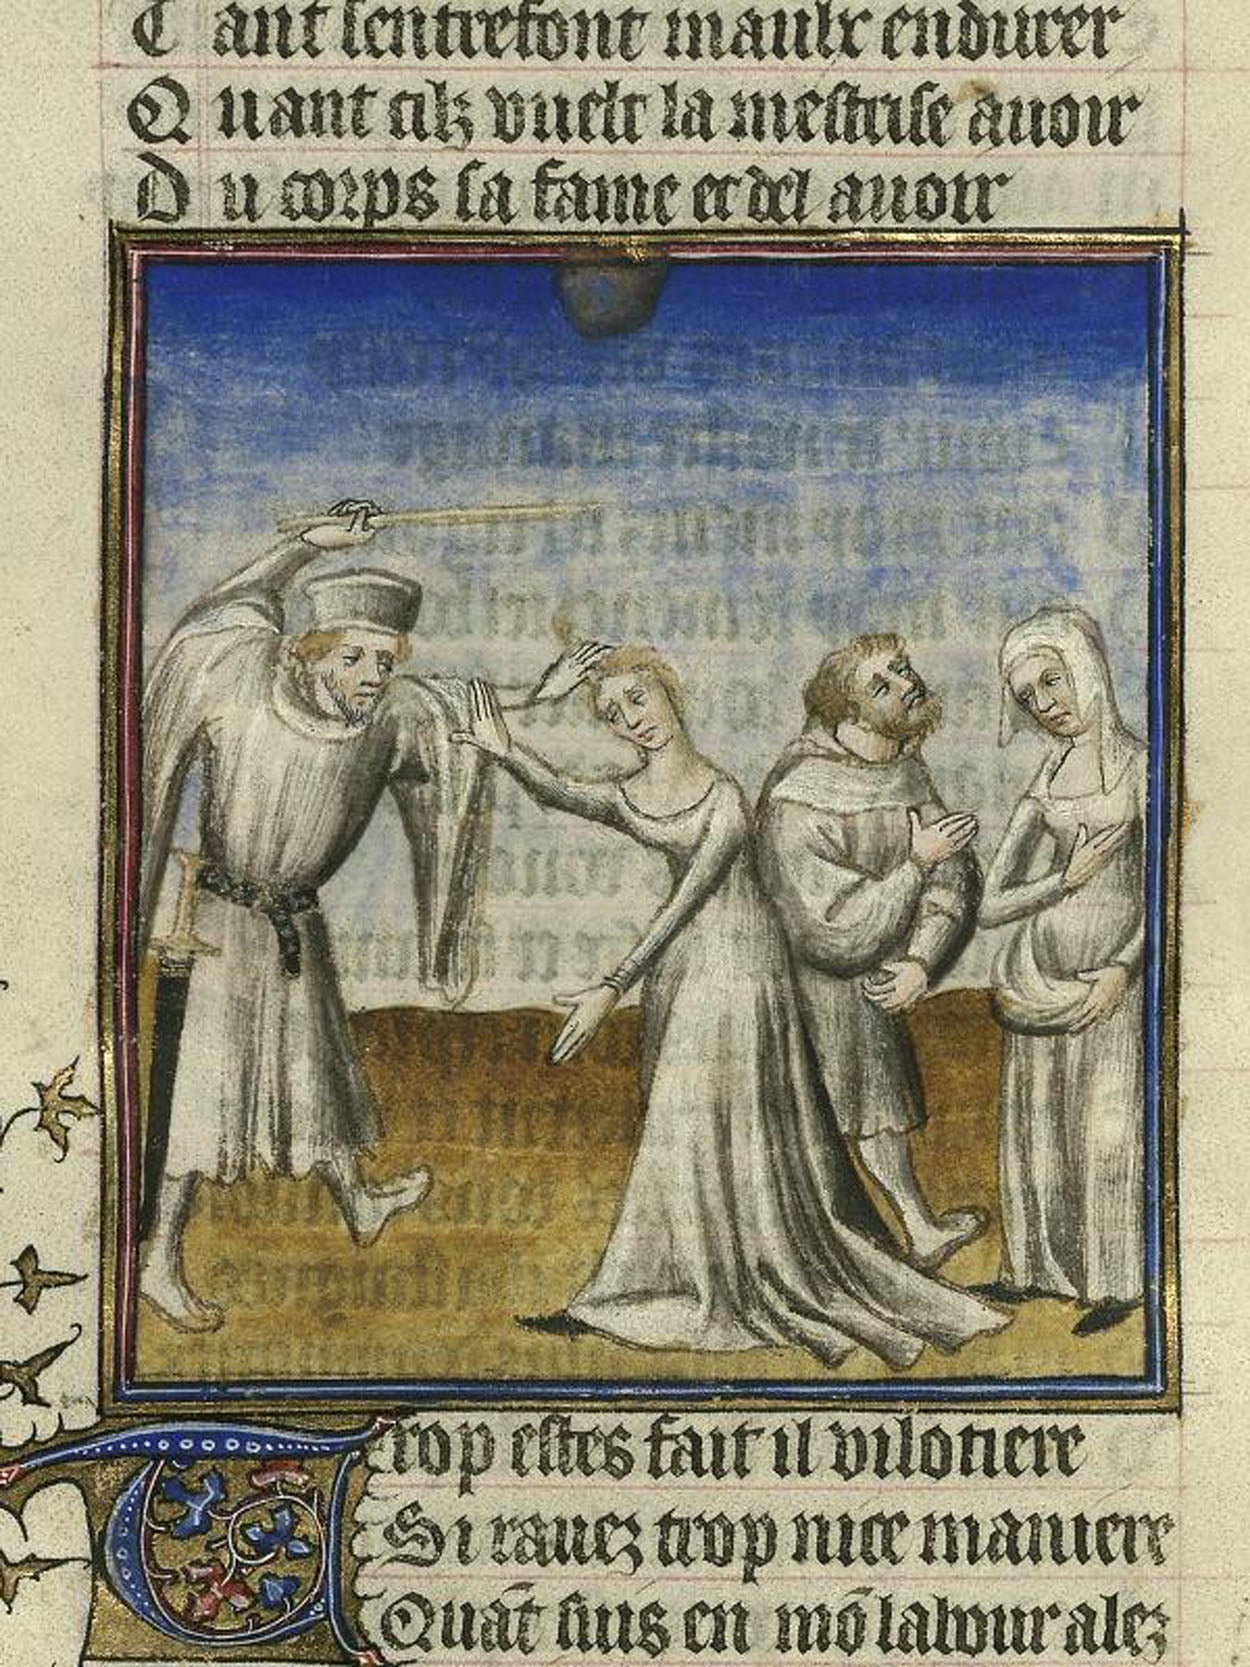 Tant sentrefont maulx endurer
Quant cilz vuelt la mestrise auoir
Du corps sa fame et del auoir
Trop estes fait il vilotiere
Si rauez trop nice maniere
Quāt suis en mō labour alez